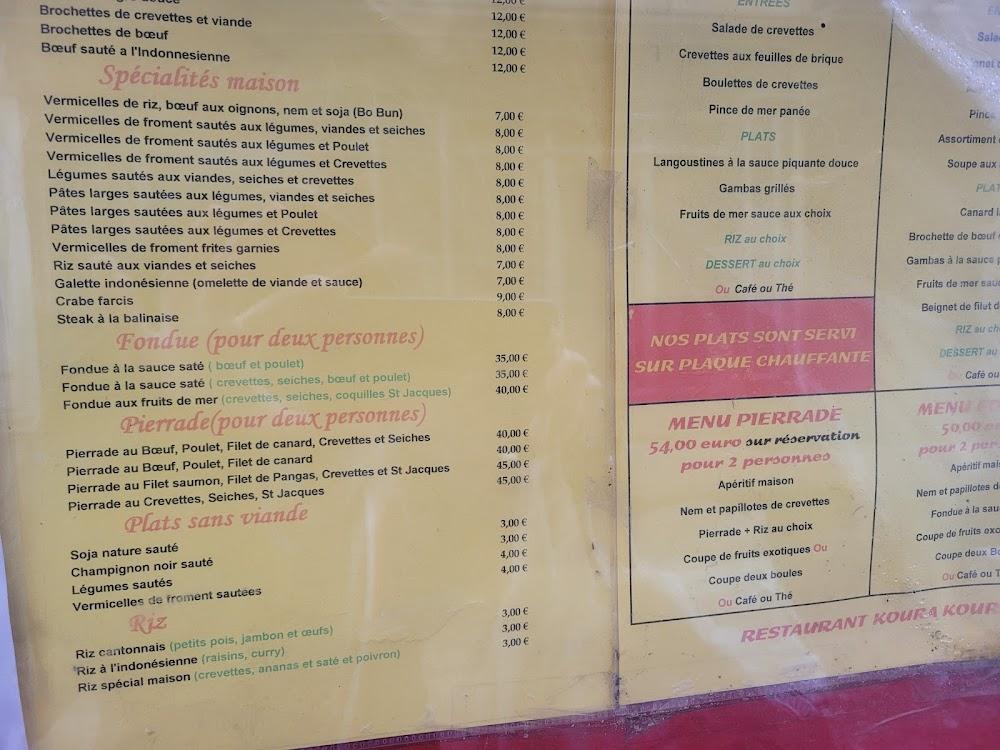 douce
12,00 €
Brochettes de crevettes et viande
12,00 €
Brochettes de bœuf
12,00 €
Bœuf sauté a l'Indonnesienne
12,00 €
12,00 €
Spécialités maison
Vermicelles de riz, bœuf aux oignons, nem et soja (Bo Bun)
7,00 €
Vermicelles de froment sautés aux légumes, viandes et seiches
8,00 €
Vermicelles de froment sautés aux légumes et Poulet
8,00 €
Vermicelles de froment sautés aux légumes et Crevettes
8,00 €
Légumes sautés aux viandes, seiches et crevettes
8,00 €
Pâtes larges sautées aux légumes, viandes et seiches
8,00 €
Pâtes larges sautées aux légumes et Poulet
8,00 €
Pâtes larges sautées aux légumes et Crevettes
8,00 €
Vermicelles de froment frites garnies
8,00 €
Riz sauté aux viandes et seiches
7,00 €
Galette indonésienne (omelette de viande et sauce)
7,00 €
Crabe farcis
9,00 €
Steak à la balinaise
8,00 €
Fondue (pour deux personnes)
Fondue à la sauce saté ( bœuf et poulet)
35,00 €
Fondue à la sauce saté ( crevettes, seiches, bœuf et poulet)
35,00 €
Fondue aux fruits de mer (crevettes, seiches, coquilles St Jacques)
40,00 €
Pierrade(pour deux personnes)
Pierrade au Bœuf, Poulet, Filet de canard, Crevettes et Seiches
40,00 €
Pierrade au Bœuf, Poulet, Filet de canard
40,00 €
Pierrade au Filet saumon, Filet de Pangas, Crevettes et St Jacques
45,00 €
Pierrade au Crevettes, Seiches, St Jacques
45,00 €
Plats sans viande
Soja nature sauté
3,00 €
Champignon noir sauté
3,00 €
Légumes sautés
4,00 €
Vermicelles de froment sautées
4,00 €
Riz
Riz cantonnais (petits pois, jambon et œufs)
3,00 €
Riz à l'indonésienne (raisins, curry)
3,00 €
Riz spécial maison (crevettes, ananas et saté et poivron)
3,00 €
ENTREES
Salade de crevettes
Crevettes aux feuilles de brique
Boulettes de crevettes
Pince de mer panée
PLATS
Langoustines à la sauce piquante douce
Gambas grillés
Fruits de mer sauce aux choix
RIZ au choix
DESSERT au choix
Ou Café ou Thé
NOS PLATS SONT SERVI
SUR PLAQUE CHAUFFANTE
MENU PIERRADE
54,00 euro sur réservation
pour 2 personnes
Apéritif maison
Nem et papillotes de crevettes
Pierrade + Riz au choix
Coupe de fruits exotiques Ou
Coupe deux boules
Ou Café ou Thé
Assortiment
Soupe aux
PLAT
Canard
Brochette de bœuf
Gambas à la sauce
Fruits de mer
Beignet de filet
RIZ au
DESSERT au
Ou Café ou
MENU
50,00
pour 2
Apéritif
Nem et papillotes
Fondue à la
Coupe de fruits
Coupe deux
Ou Café ou
RESTAURANT KOURA KOUR